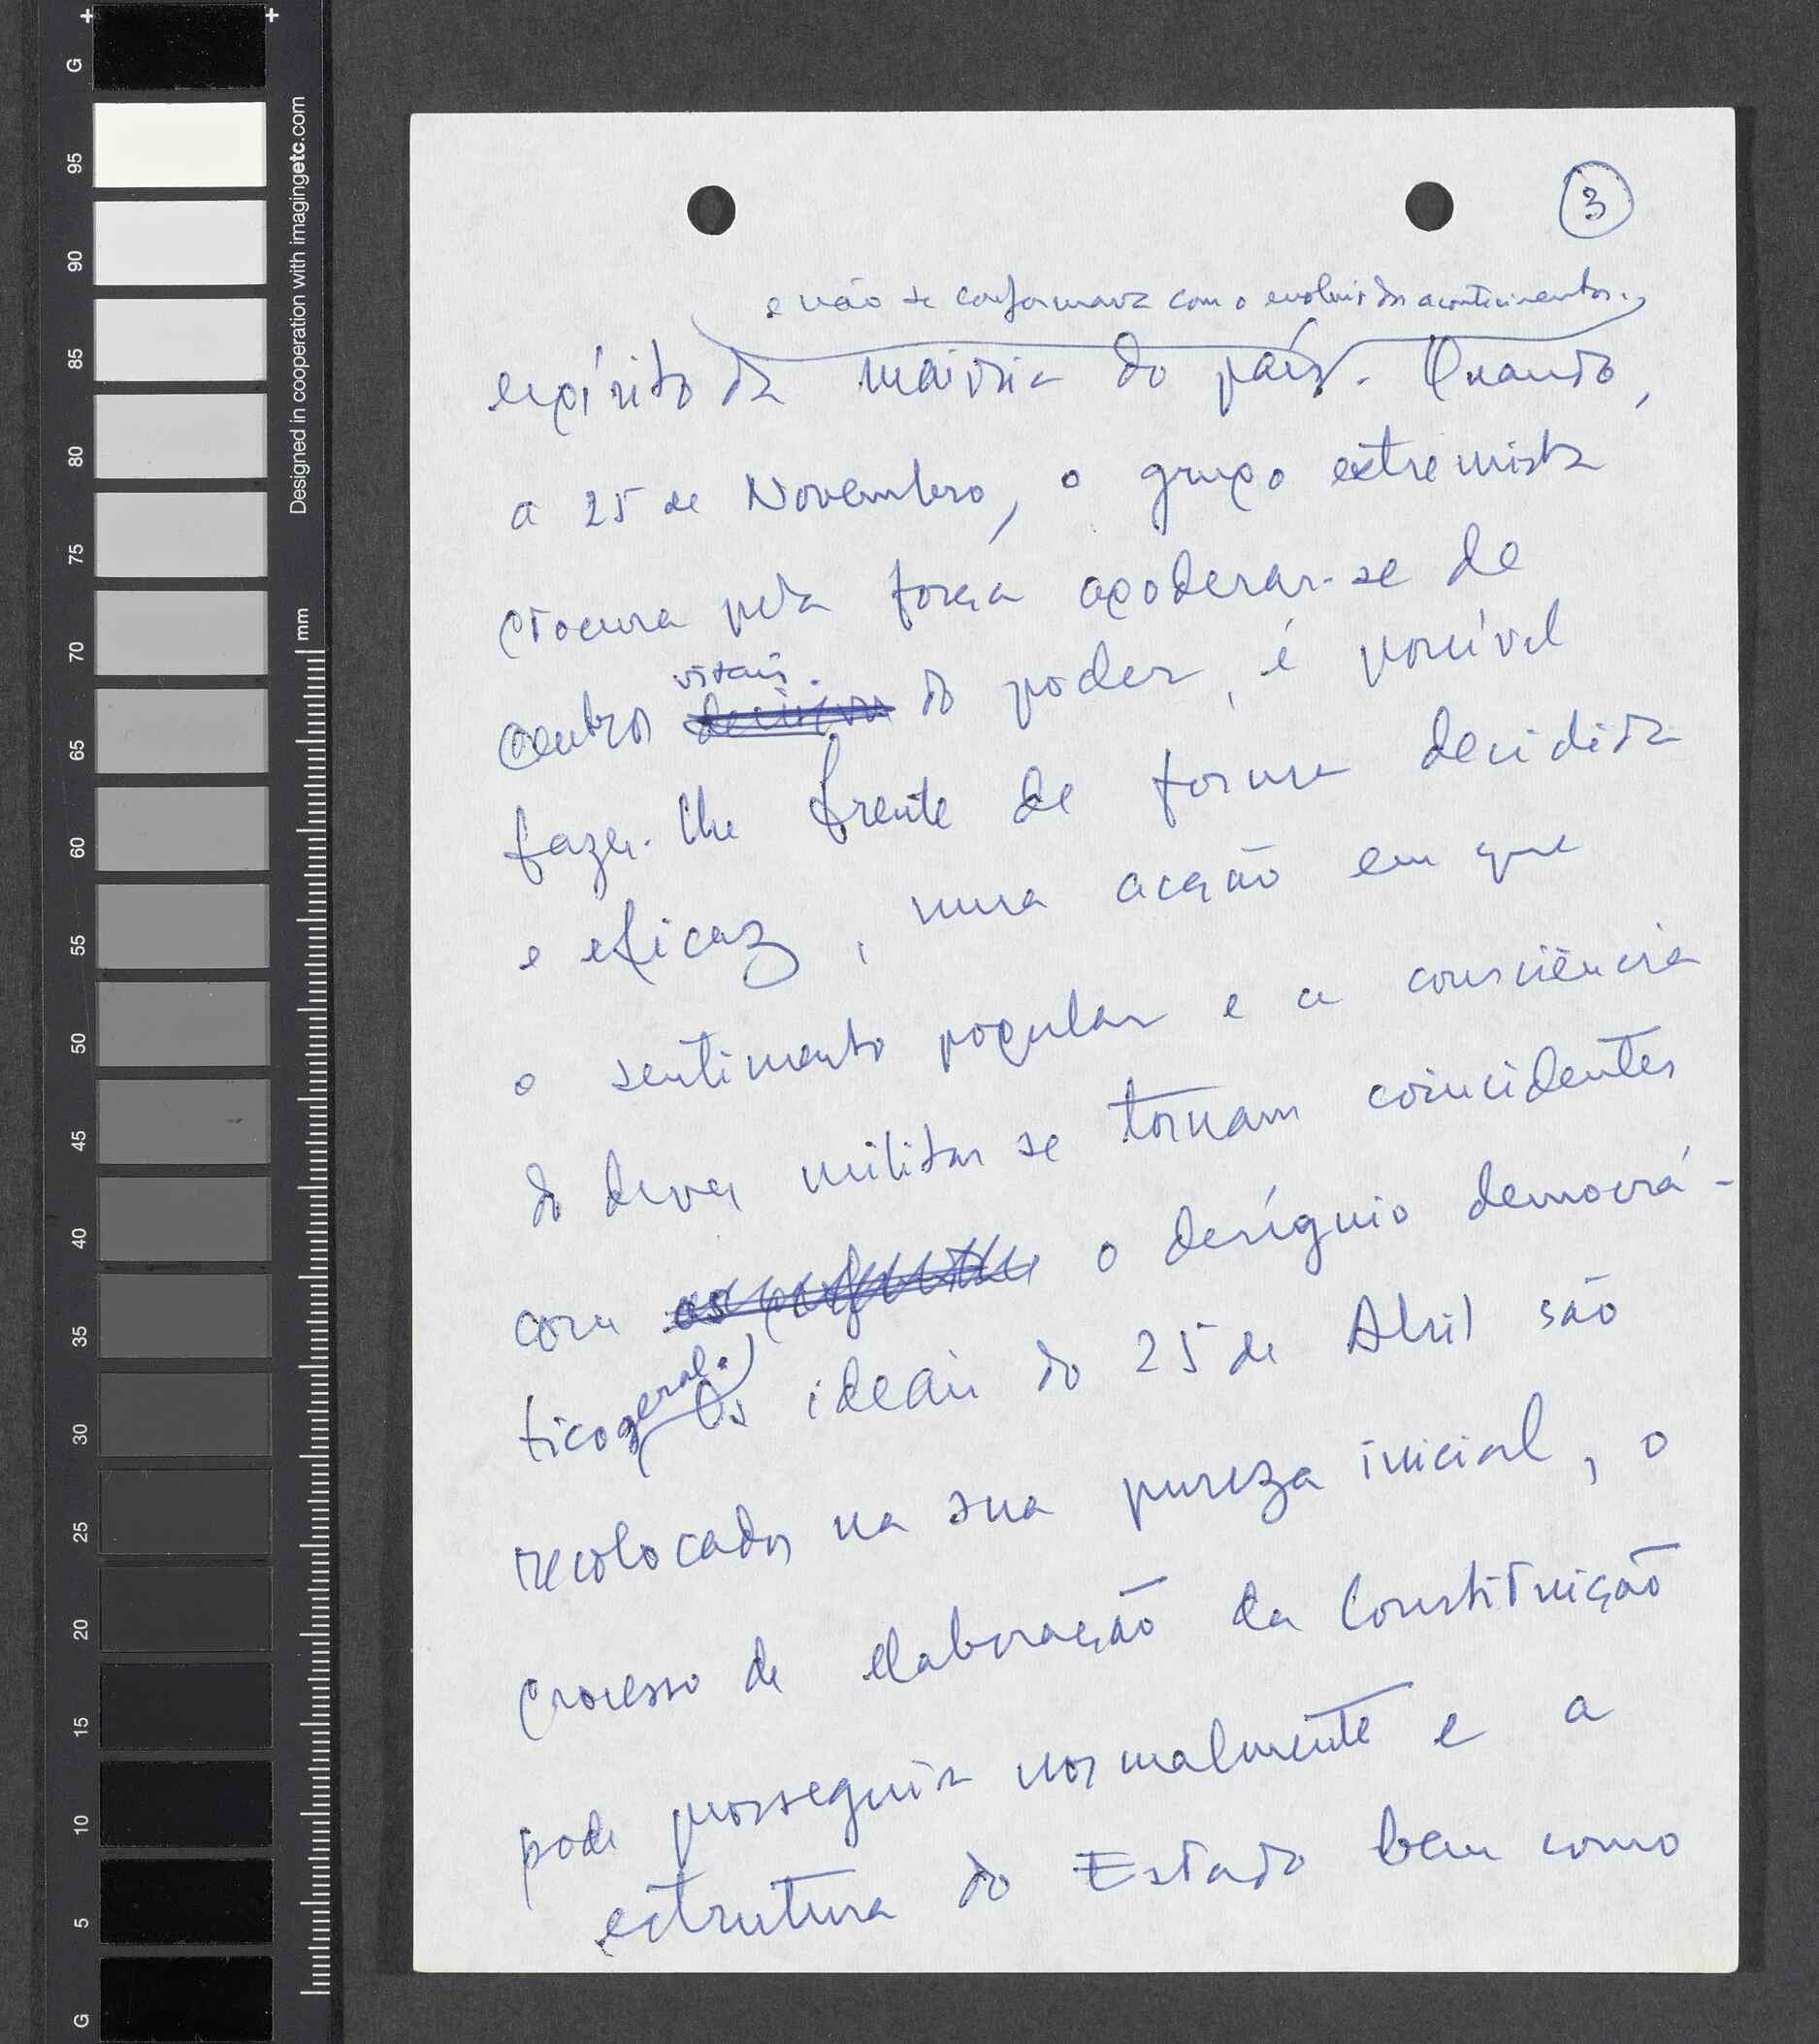 G
95
90
85
80
75
70
65
60
55
50
45
40
35
30
25
20
15
10
5
G
Designed in cooperation with imagingetc.com
mm
3
e não se conformava com o evoluir dos acontecimentos.
espírito da maioria do país. Quando,
a 25 de Novembro, o grupo extremista
procura pela força apoderar-se de
vitais
centros decisivos do poder, é possível
fazer-lhe frente de forma decidida
e eficaz, numa acção em que
o sentimento popular e a consciência
do dever militar se tornam coincidentes
com o desígnio democrá-
tico geral. Os ideais do 25 de Abril são
recolocados na sua pureza inicial, o
processo de elaboração da Constituição
pode prosseguir normalmente e a
estrutura do Estado bem como